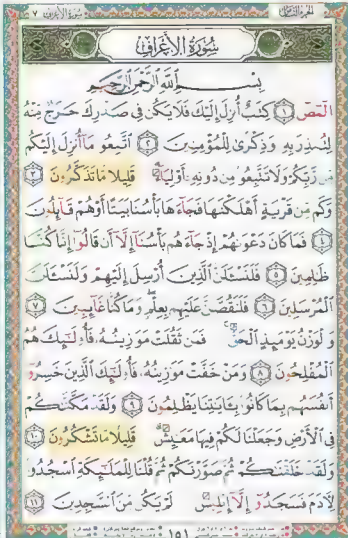 سُورَةُ الأَعْرَافِ
بِسْمِ اللَّهِ الرَّحْمَٰنِ الرَّحِيمِ
الٓمٓصٓ ۝١ كِتَٰبٌ أُنزِلَ إِلَيْكَ فَلَا يَكُن فِى صَدْرِكَ حَرَجٌ مِّنْهُ
لِتُنذِرَ بِهِۦ وَذِكْرَىٰ لِلْمُؤْمِنِينَ ۝٢ ٱتَّبِعُوا۟ مَآ أُنزِلَ إِلَيْكُم
مِّن رَّبِّكُمْ وَلَا تَتَّبِعُوا۟ مِن دُونِهِۦٓ أَوْلِيَآءَ ۗ قَلِيلًا مَّا تَذَكَّرُونَ ۝٣
وَكَم مِّن قَرْيَةٍ أَهْلَكْنَٰهَا فَجَآءَهَا بَأْسُنَا بَيَٰتًا أَوْ هُمْ قَآئِلُونَ
۝٤ فَمَا كَانَ دَعْوَىٰهُمْ إِذْ جَآءَهُم بَأْسُنَآ إِلَّآ أَن قَالُوٓا۟ إِنَّا كُنَّا
ظَٰلِمِينَ ۝٥ فَلَنَسْـَٔلَنَّ ٱلَّذِينَ أُرْسِلَ إِلَيْهِمْ وَلَنَسْـَٔلَنَّ
ٱلْمُرْسَلِينَ ۝٦ فَلَنَقُصَّنَّ عَلَيْهِم بِعِلْمٍ ۖ وَمَا كُنَّا غَآئِبِينَ ۝٧
وَٱلْوَزْنُ يَوْمَئِذٍ ٱلْحَقُّ ۚ فَمَن ثَقُلَتْ مَوَٰزِينُهُۥ فَأُو۟لَٰٓئِكَ هُمُ
ٱلْمُفْلِحُونَ ۝٨ وَمَنْ خَفَّتْ مَوَٰزِينُهُۥ فَأُو۟لَٰٓئِكَ ٱلَّذِينَ خَسِرُوٓا۟
أَنفُسَهُم بِمَا كَانُوا۟ بِـَٔايَٰتِنَا يَظْلِمُونَ ۝٩ وَلَقَدْ مَكَّنَّٰكُمْ
فِى ٱلْأَرْضِ وَجَعَلْنَا لَكُمْ فِيهَا مَعَٰيِشَ ۗ قَلِيلًا مَّا تَشْكُرُونَ ۝١٠
وَلَقَدْ خَلَقْنَٰكُمْ ثُمَّ صَوَّرْنَٰكُمْ ثُمَّ قُلْنَا لِلْمَلَٰٓئِكَةِ ٱسْجُدُوا۟
لِـَٔادَمَ فَسَجَدُوٓا۟ إِلَّآ إِبْلِيسَ لَمْ يَكُن مِّنَ ٱلسَّٰجِدِينَ ۝١١
١٥١